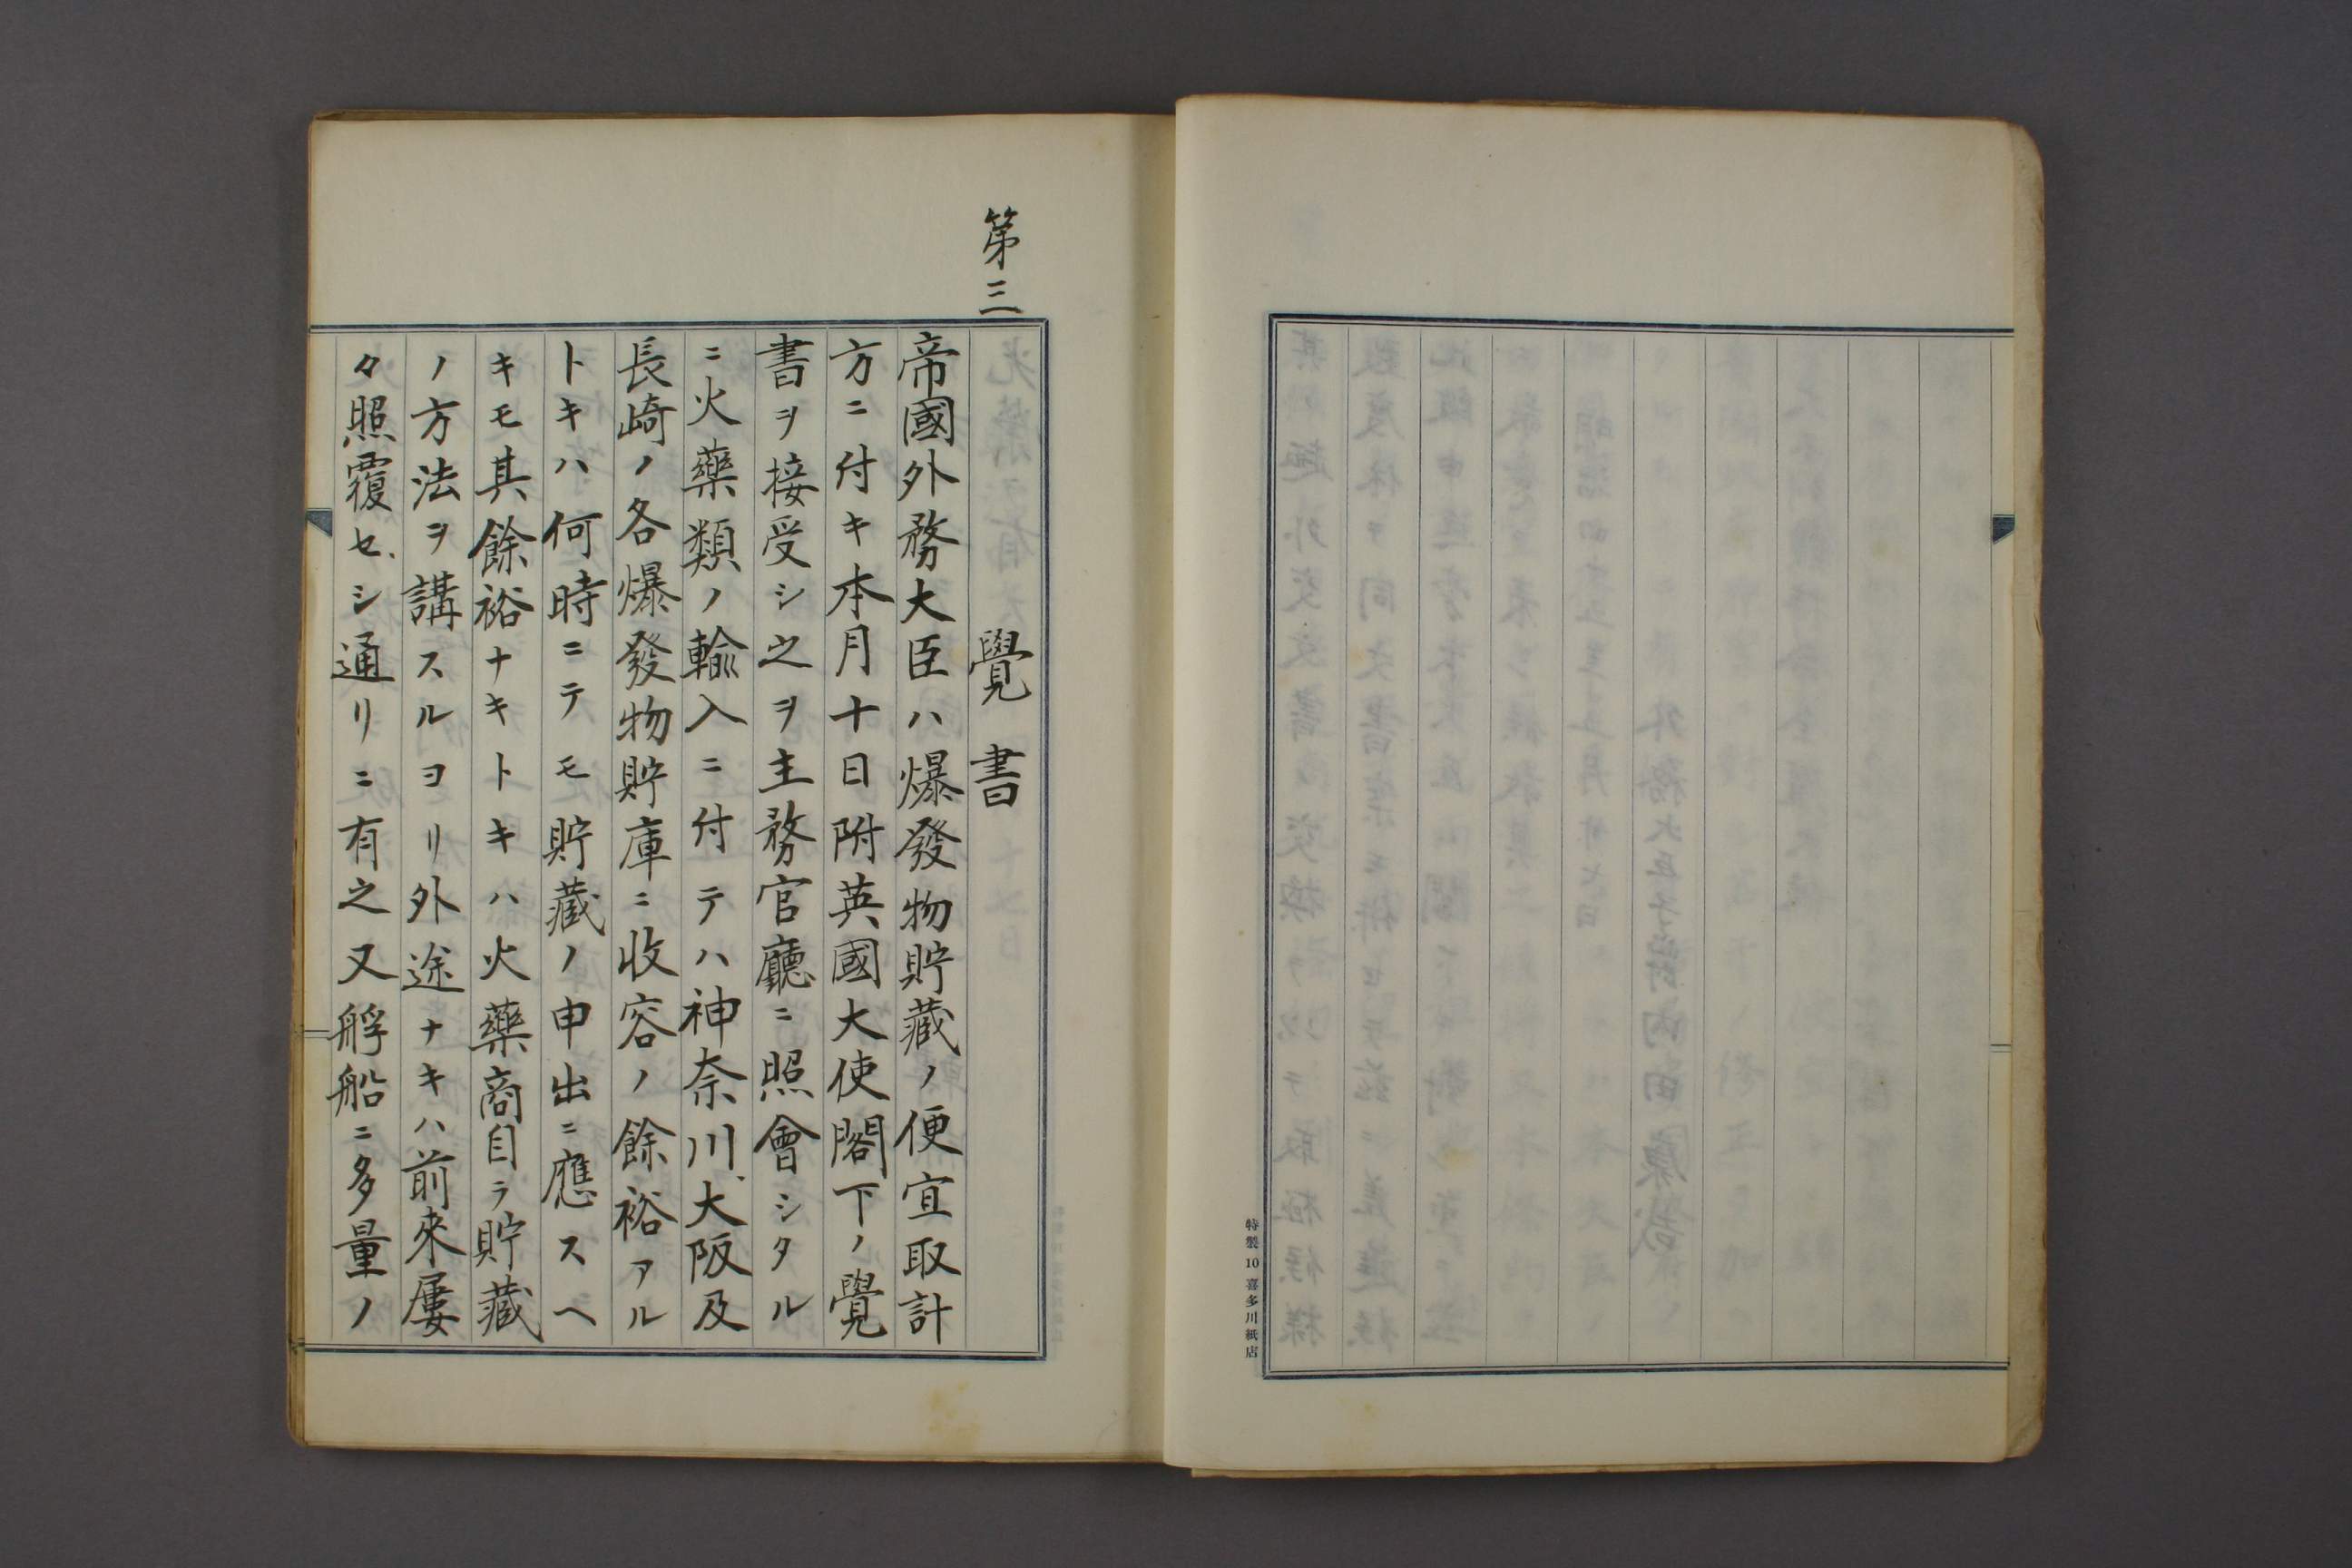 特製10 喜多川紙店
第三
覺書
帝國外務大臣ハ爆發物貯藏ノ便宜取計
方ニ付キ本月十日附英國大使閣下ノ覺
書ヲ接受シ之ヲ主務官廳ニ照會シタル
ニ火藥類ノ輸入ニ付テハ神奈川、大阪及
長崎ノ各爆發物貯庫ニ收容ノ餘裕アル
トキハ何時ニテモ貯藏ノ申出ニ應スヘ
キモ其餘裕ナキトキハ火藥商自ラ貯藏
ノ方法ヲ講スルヨリ外途ナキハ前來屢
々照覆セ、シ通リニ有之又艀船ニ多量ノ